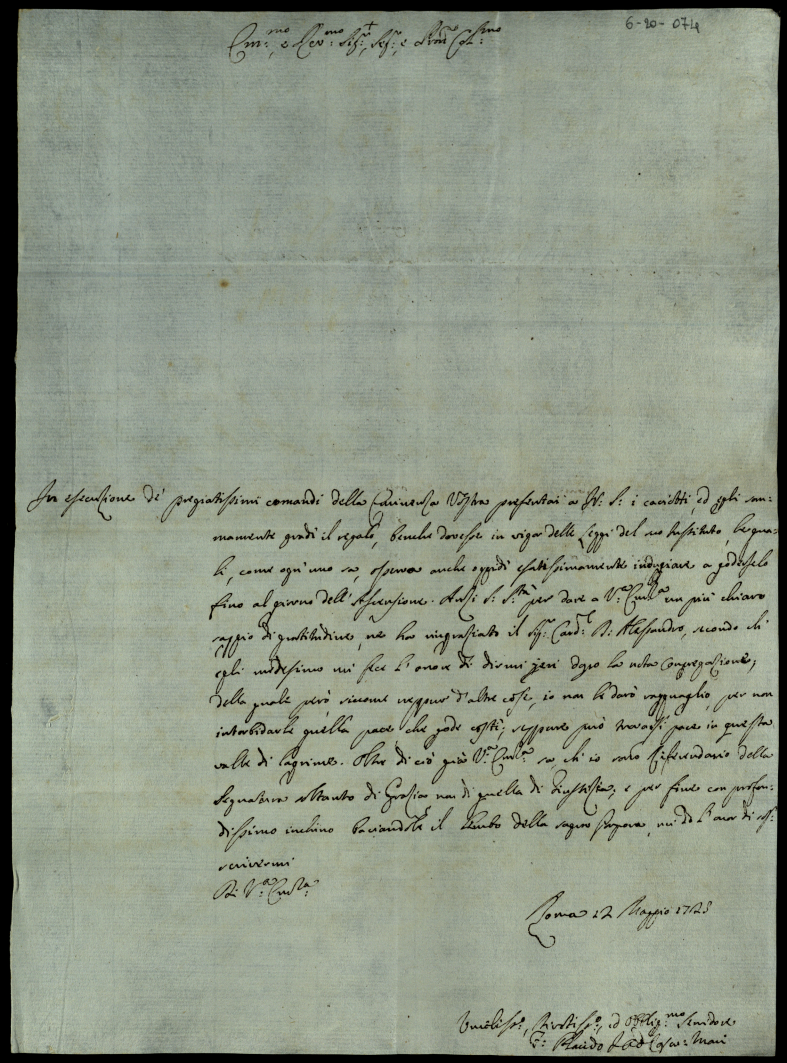 6-20-074
Em:mo, e Rev:mo Sig:r, Sig:r, e Pron Col:mo
In esecuzione de' pregiatissimi comandi della Eminenza Vostra presentai a N: S: i caciotti, ed egli som-
mamente gradì il regalo, benche dovesse in vigor delle Leggi del suo Instituto, le qua-
li, come ogn'uno sa, osserva anche oggidì esattissimamente indugiare a goderselo
fino al giorno dell'Ascensione. Anzi S: S:tà per dare a V:a Em:za un più chiaro
saggio di gratitudine, ne ha ringraziato il Sig:r Card:l D: Alessandro, secondo che
egli medesimo mi fece l'onore di dirmi jeri dopo la nota Congregazione;
della quale però, siccome neppur d'altre cose, io non le darò ragguaglio, per non
intorbidarle quella pace, che gode costì; seppure può trovarsi pace in questa
valle di lagrime. Oltre di ciò già V:a Em:za sa, che io sono Referendario della
Segnatura soltanto di Grazia, non di quella di Giustizia; e per fine con profon-
dissimo inchino baciandole il lembo della sagra Porpora, mi do l'onor di sot-
scrivermi
Di V:a Em:za
Roma 12 Maggio 1725
Umiliss:o, Divotiss:o, ed Obblig:mo Servidore
F: Placido